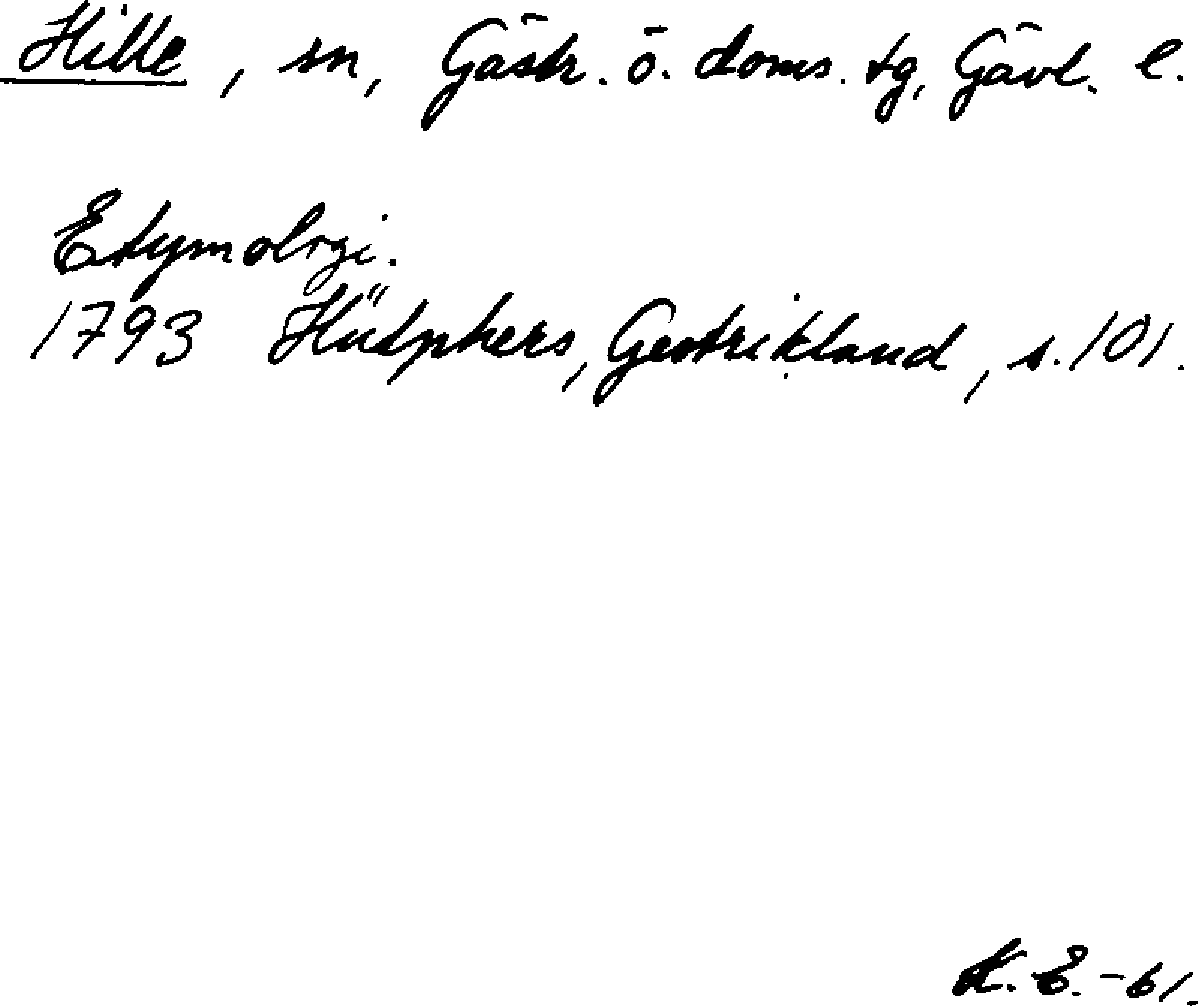 Hille, sn, Gästr. ö. doms. tg, Gävl. l.
Etymologi.
1793 Hülphers, Gestrikland, s. 101.
K. E. -61.